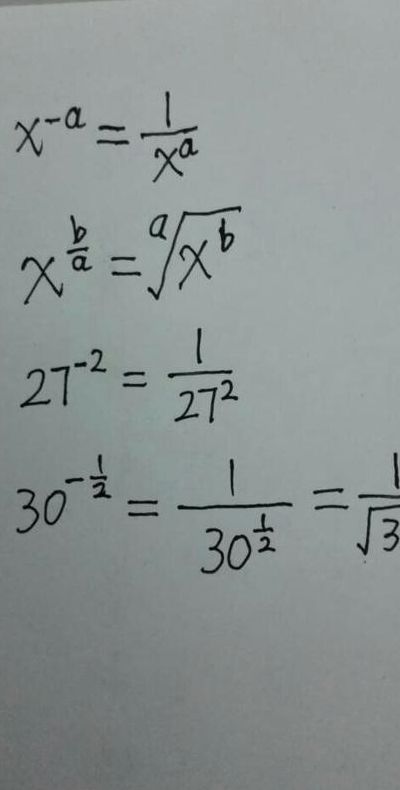 x^{-a} = \frac{1}{x^a}
x^{\frac{b}{a}} = \sqrt[a]{x^b}
27^{-2} = \frac{1}{27^2}
30^{-\frac{1}{2}} = \frac{1}{30^{\frac{1}{2}}} = \frac{1}{\sqrt{3